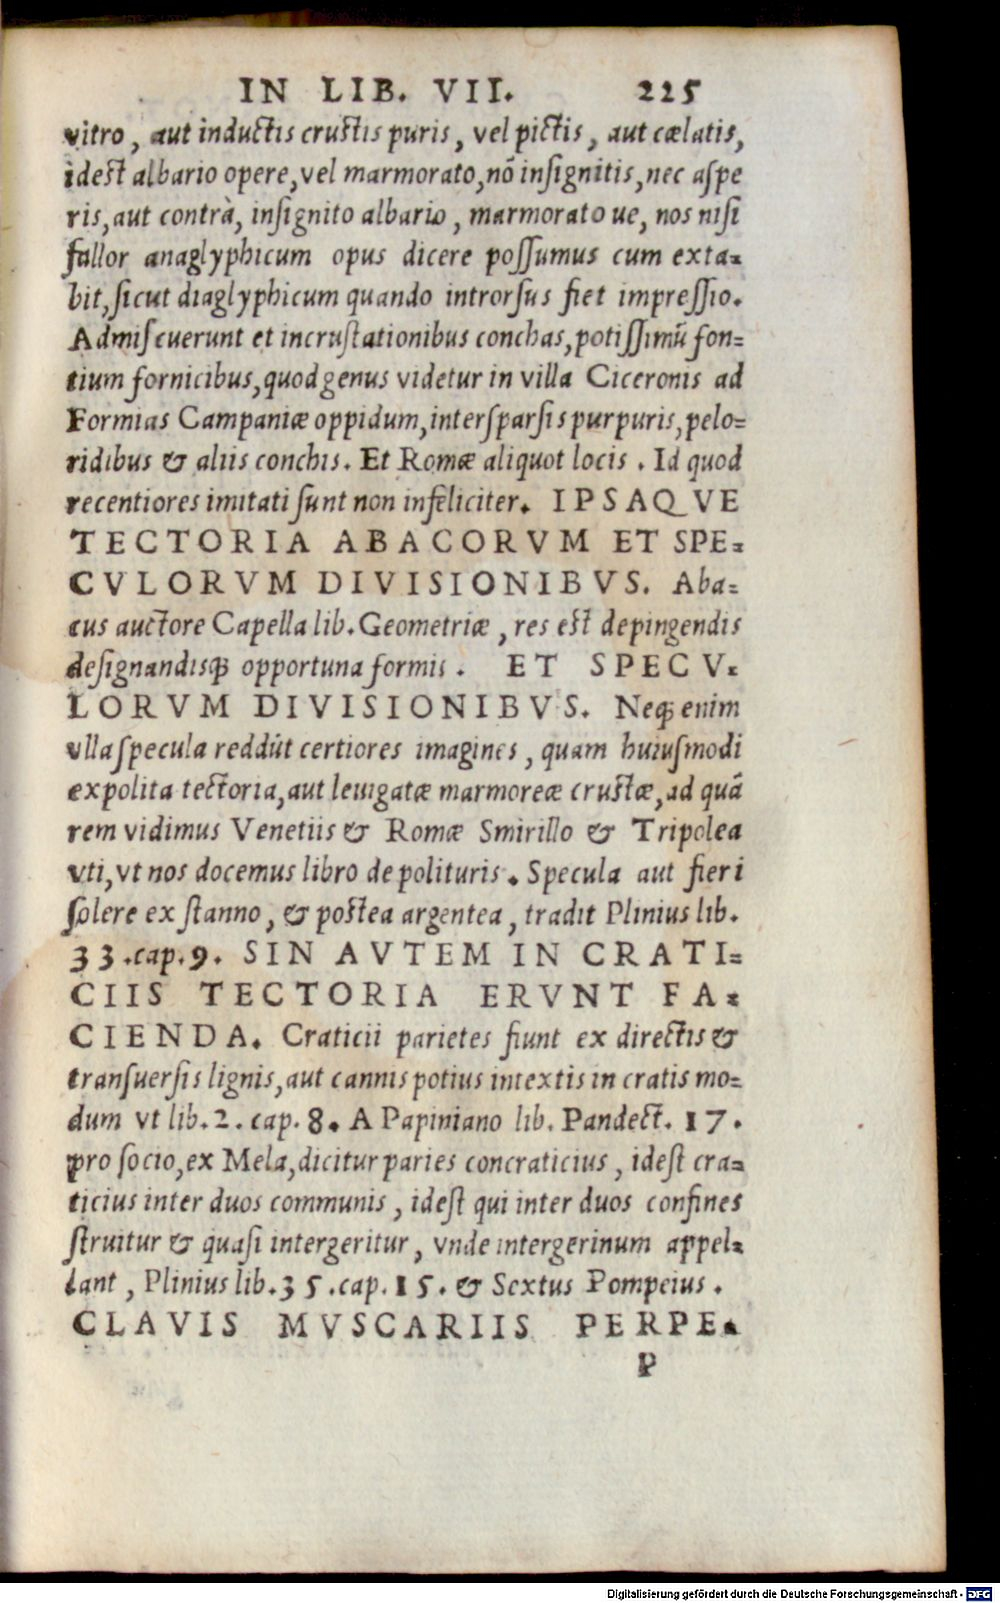 IN LIB. VII. 225
vitro, aut inductis crustis puris, vel pictis, aut cælatis,
idest albario opere, vel marmorato, nō insignitis, nec aspe
ris, aut contrà, insignito albario, marmorato ue, nos nisi
fallor anaglyphicum opus dicere possumus cum exta-
bit, sicut diaglyphicum quando introrsus fiet impressio.
Admiscuerunt et incrustationibus conchas, potissimū fon-
tium fornicibus, quod genus videtur in villa Ciceronis ad
Formias Campaniæ oppidum, intersparsis purpuris, pelo-
ridibus & aliis conchis. Et Romæ aliquot locis. Id quod
recentiores imitati sunt non infeliciter. IPSAQVE
TECTORIA ABACORVM ET SPE-
CVLORVM DIVISIONIBVS. Aba-
cus auctore Capella lib. Geometriæ, res est depingendis
designandisq; opportuna formis. ET SPECV-
LORVM DIVISIONIBVS. Neq; enim
vlla specula reddūt certiores imagines, quam huiusmodi
expolita tectoria, aut leuigatæ marmoreæ crustæ, ad quā
rem vidimus Venetiis & Romæ Smirillo & Tripolea
vti, vt nos docemus libro de polituris. Specula aut fieri
solere ex stanno, & postea argentea, tradit Plinius lib.
33.cap.9. SIN AVTEM IN CRATI-
CIIS TECTORIA ERVNT FA-
CIENDA. Craticii parietes fiunt ex directis &
transuersis lignis, aut cannis potius intextis in cratis mo-
dum vt lib.2. cap. 8. A Papiniano lib. Pandect. 17.
pro socio, ex Mela, dicitur paries concraticius, idest cra-
ticius inter duos communis, idest qui inter duos confines
struitur & quasi intergeritur, vnde intergerinum appel-
lant, Plinius lib.35.cap.15. & Sextus Pompeius.
CLAVIS MVSCARIIS PERPE-
P
Digitalisierung gefördert durch die Deutsche Forschungsgemeinschaft - DFG